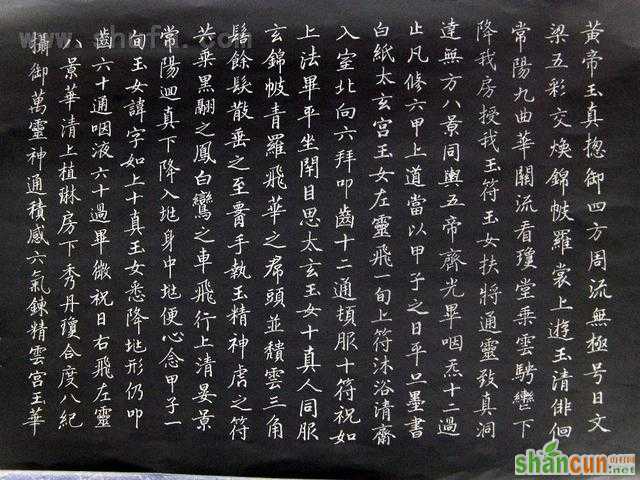 黄帝玉真揔御四方周流無極号日文
梁五彩交煥錦帔羅裳上遊玉清俳佪
常陽九曲華關流看瓊堂乗雲騁轡下
降我房授我玉符玉女扶將通靈致真洞
達無方八景同輿五帝齊光畢咽炁十二過
止凡修六甲上道當以甲子之日平旦墨書
白紙太玄宮玉女左靈飛一旬上符沐浴清齋
入室北向六拜叩齒十二通頓服十符祝如
上法畢平坐閇目思太玄玉女十真人同服
玄錦帔青羅飛華之帬頭並頹雲三角
髻餘髮散垂之至膏手執玉精神虎之符
共乗黒翮之鳳白鸞之車飛行上清晏景
常陽迴真下降入地身中地便心念甲子一
旬玉女諱字如上十真玉女悉降地形仍叩
齒六十通咽液六十過畢微祝日右飛左靈
八景華清上植琳房下秀丹瓊合度八紀
攝御萬靈神通積感六氣鍊精雲宮玉華
shancun